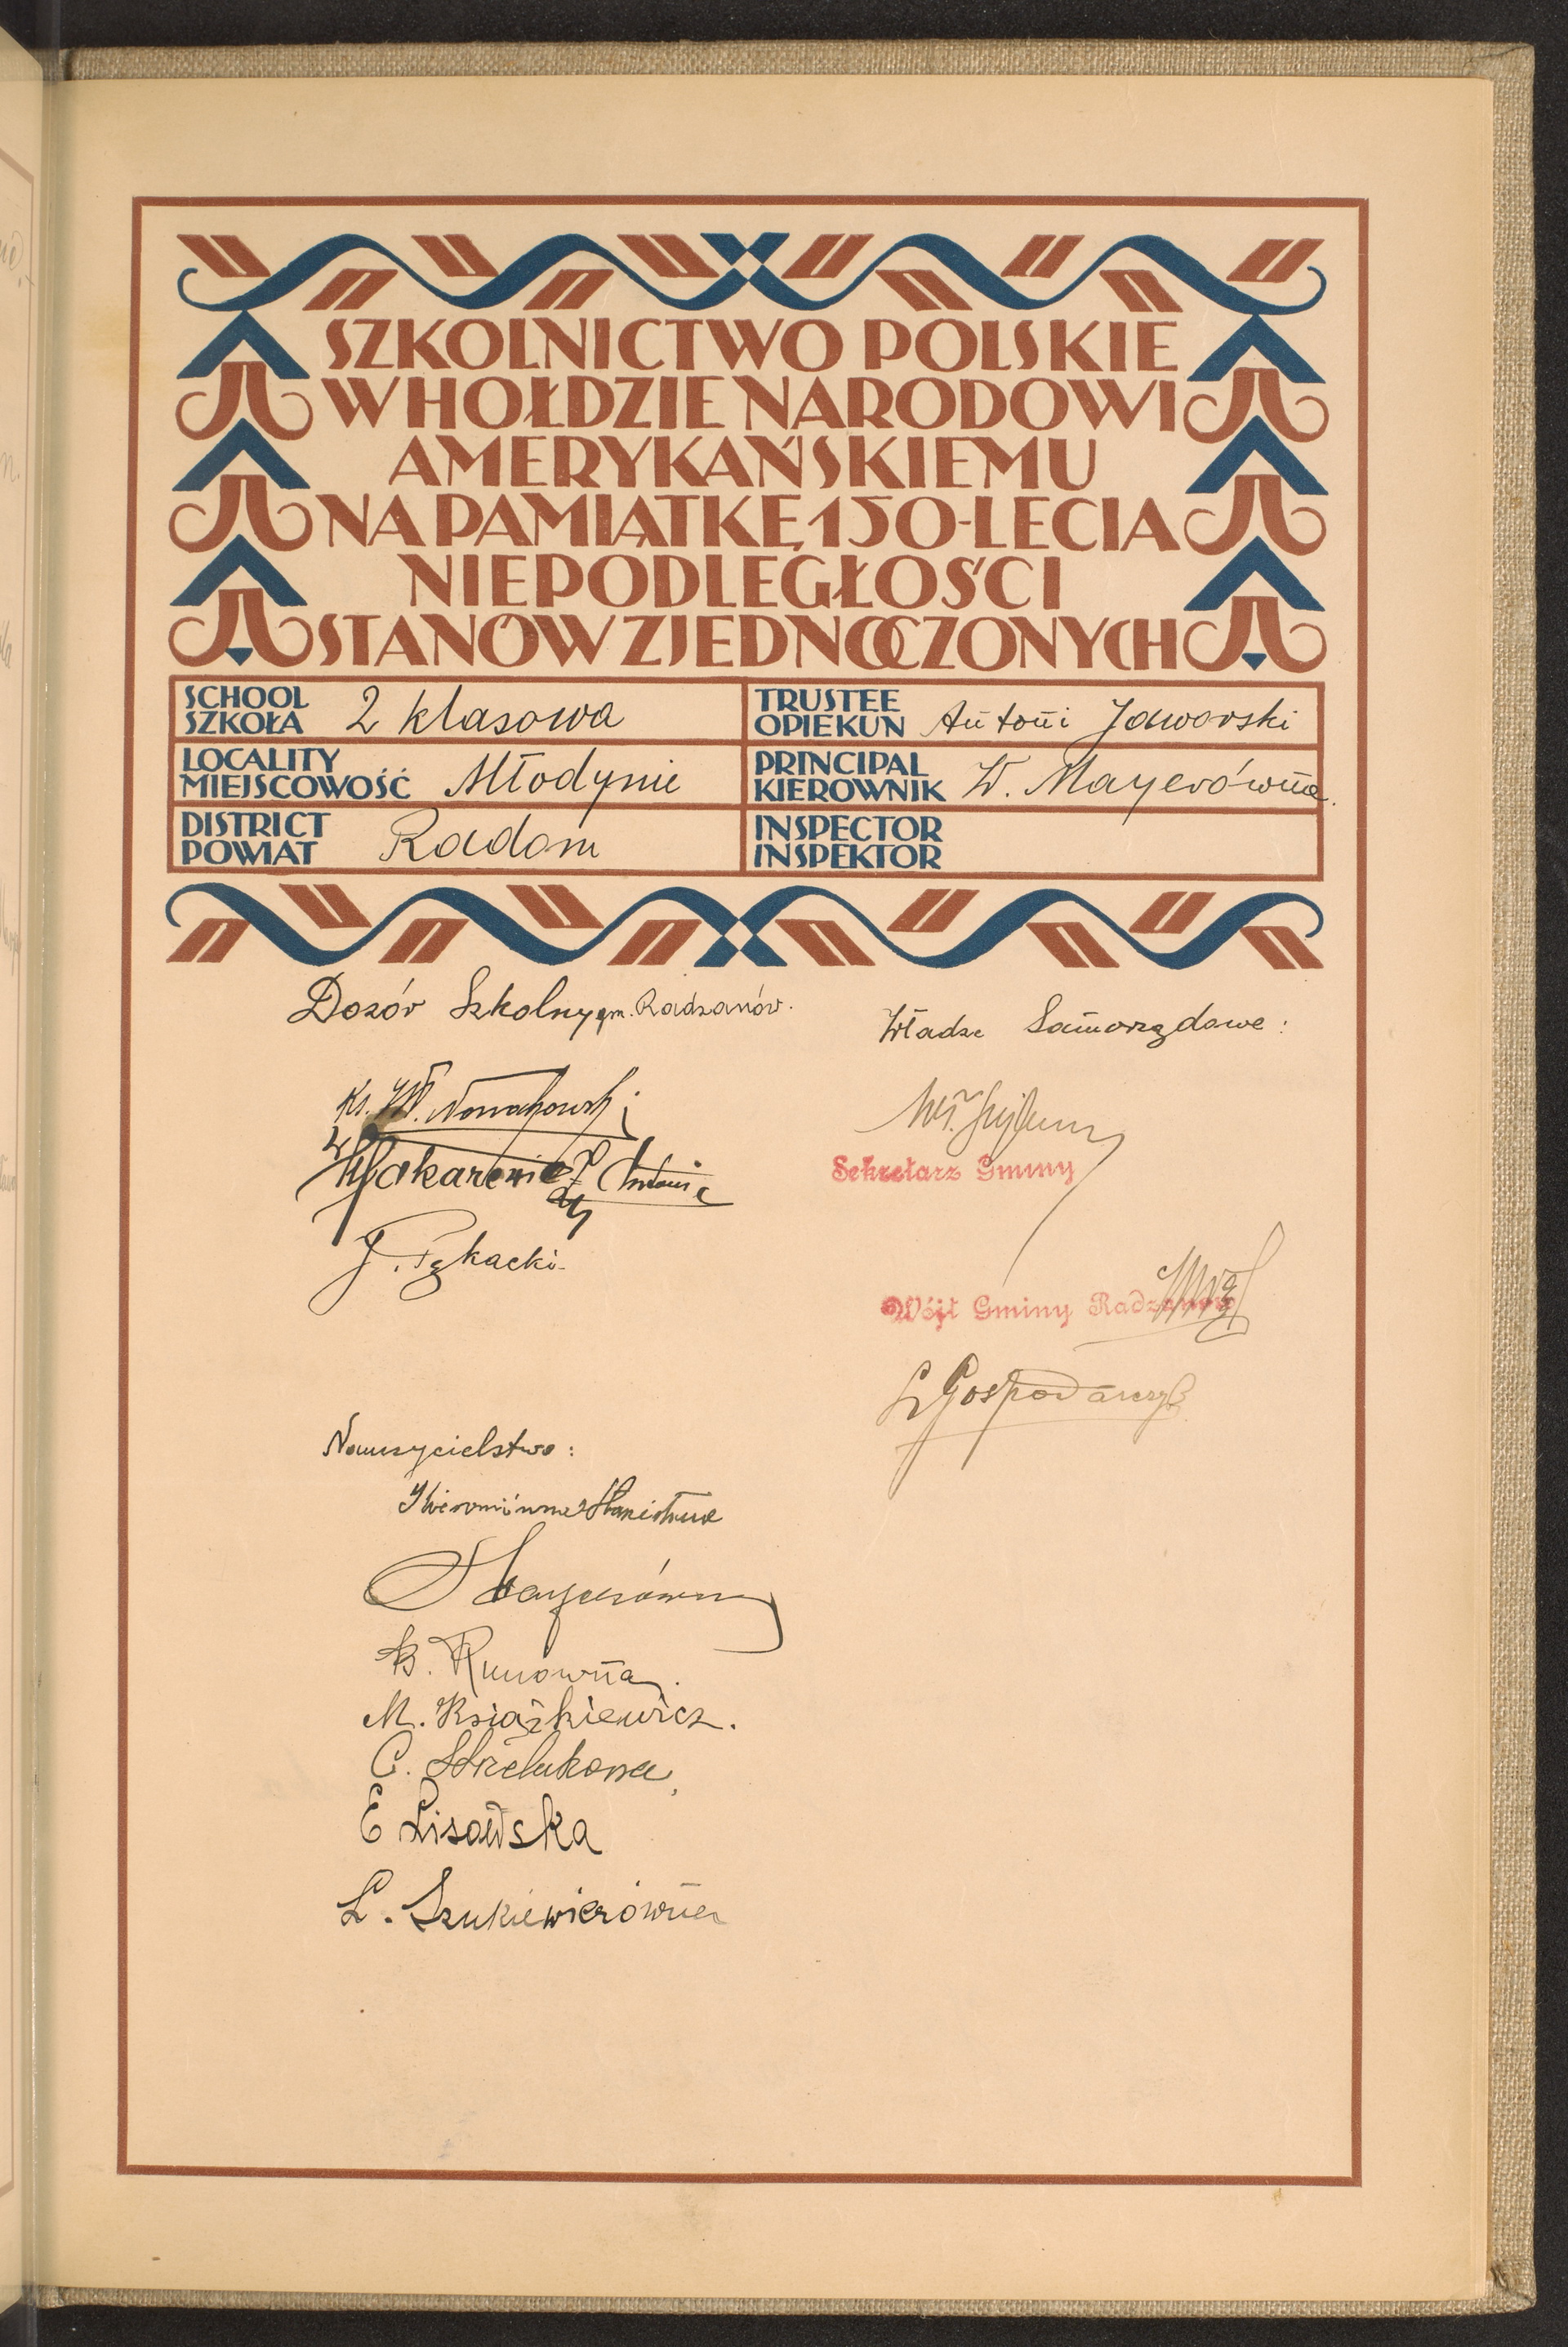 SZKOLNICTWO POLSKIE
W HOŁDZIE NARODOWI
AMERYKAŃSKIEMU
NA PAMIĄTKĘ 150-LECIA
NIEPODLEGŁOŚCI
STANÓW ZJEDNOCZONYCH
SCHOOL
SZKOŁA 2 klasowa
TRUSTEE
OPIEKUN Antoni Jaworski
LOCALITY
MIEJSCOWOŚĆ Młodynie
PRINCIPAL
KIEROWNIK W. Mayerówna.
DISTRICT
POWIAT Radom
INSPECTOR
INSPEKTOR
Dozór Szkolny gm. Radzanów.
Ks. Wł. Nowakowski
J. Pękacki
Władze Samorządowe:
Sekretarz Gminy
Wójt Gminy Radzanów
Gospodarczyk
Nauczycielstwo:
Mayerówna
B. Runowna.
M. Książkiewicz.
C. Strzelukowa
E Lisowska
L. Szukiewiczówna